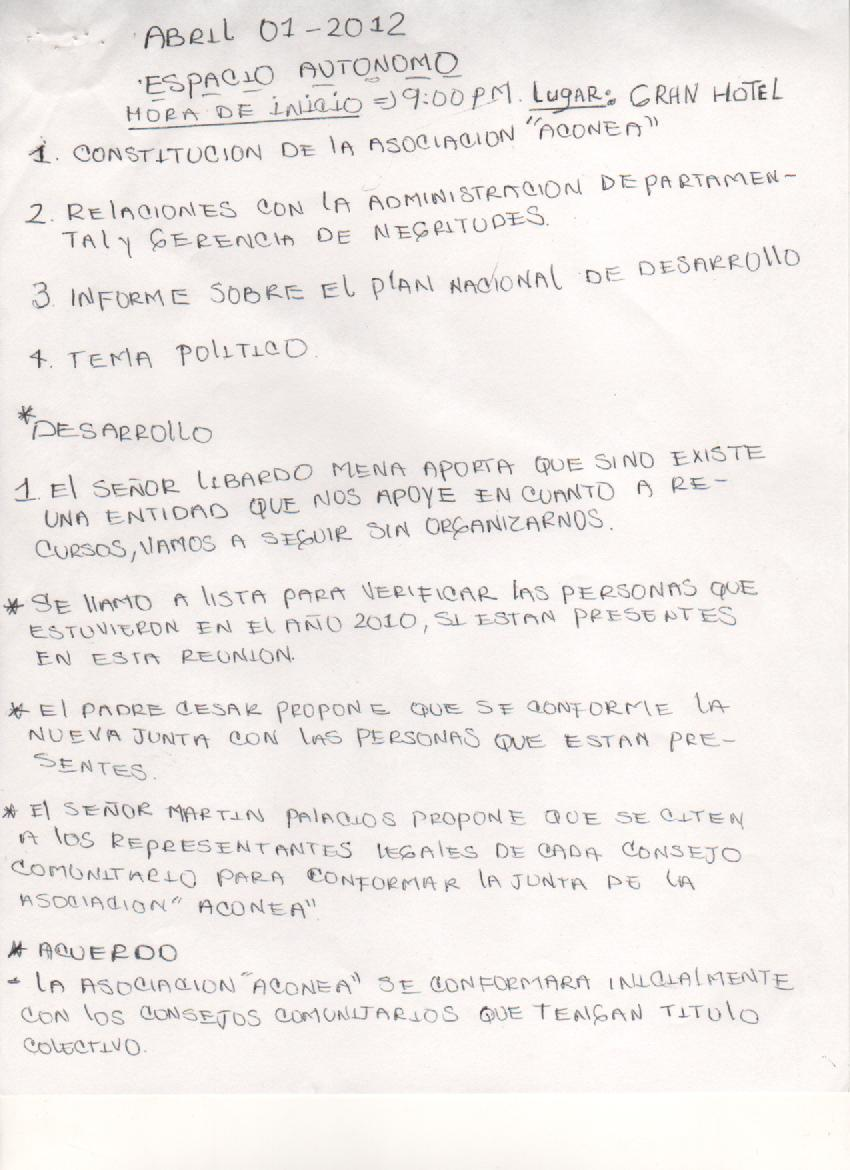 ABRIL 01-2012
ESPACIO AUTONOMO
HORA DE INICIO => 9:00 PM. LUGAR: GRAN HOTEL
1. CONSTITUCION DE LA ASOCIACION "ACONEA"
2. RELACIONES CON LA ADMINISTRACION DEPARTAMEN-
TAL Y GERENCIA DE NEGRITUDES.
3. INFORME SOBRE EL PLAN NACIONAL DE DESARROLLO
4. TEMA POLITICO.
* DESARROLLO
1. EL SEÑOR LIBARDO MENA APORTA QUE SINO EXISTE
UNA ENTIDAD QUE NOS APOYE EN CUANTO A RE-
CURSOS, VAMOS A SEGUIR SIN ORGANIZARNOS.
* SE LLAMO A LISTA PARA VERIFICAR LAS PERSONAS QUE
ESTUVIERON EN EL AÑO 2010, SI ESTAN PRESENTES
EN ESTA REUNION.
* EL PADRE CESAR PROPONE QUE SE CONFORME LA
NUEVA JUNTA CON LAS PERSONAS QUE ESTAN PRE-
SENTES.
* EL SEÑOR MARTIN PALACIOS PROPONE QUE SE CITEN
A LOS REPRESENTANTES LEGALES DE CADA CONSEJO
COMUNITARIO PARA CONFORMAR LA JUNTA DE LA
ASOCIACION "ACONEA"
* ACUERDO
- LA ASOCIACION "ACONEA" SE CONFORMARA INICIALMENTE
CON LOS CONSEJOS COMUNITARIOS QUE TENGAN TITULO
COLECTIVO.